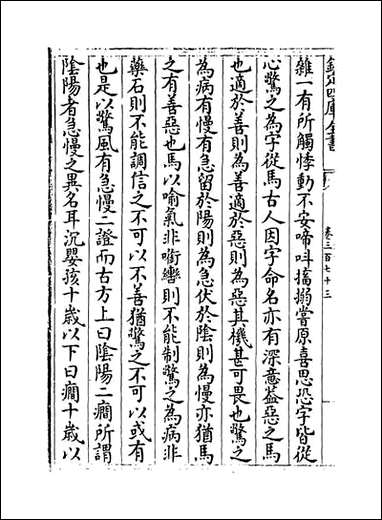 欽定四庫全書
卷三百七十三
雜一有所觸悸動不安啼呌搐搦嘗原喜思恐字皆從
心驚之為字從馬古人因字命名亦有深意葢惡之馬
也適於善則為善適於惡則為惡其機甚可畏也驚之
為病有慢有急留於陽則為急伏於隂則為慢亦猶馬
之有善惡也馬以喻氣非銜轡則不能制驚之為病非
藥石則不能調信之不可以不善猶驚之不可以或有
也是以驚風有急慢二證而古方上曰隂陽二癎所謂
隂陽者急慢之異名耳沉嬰孩十歲以下曰癎十歲以